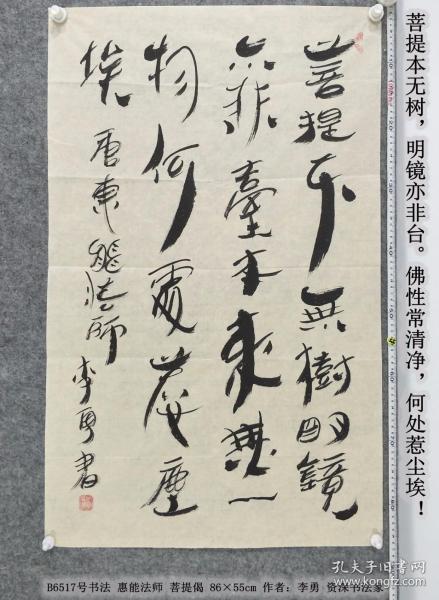 菩提本无树，明镜亦非台。佛性常清净，何处惹尘埃！
菩提本無樹明鏡
亦非臺本來無一
物何處惹塵
埃 唐惠能法師 李勇書
B6517号书法 惠能法师 菩提偈 86×55cm 作者：李勇 资深书法家
孔夫子旧书网